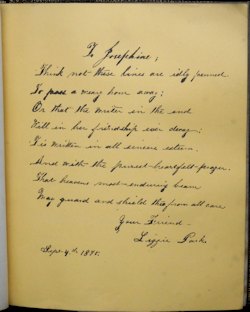 To Josephine;
Think not these lines are idly penned
To pass a weary hour away;
Or that the writer in the end
Will in her friendship ever decay;
Tis written in all sincere esteem
And with the purest heartfelt prayer
That heavens most enduring beam
May guard and shield thee from all care
Your Friend
Lizzie Park
Sept 4th 18